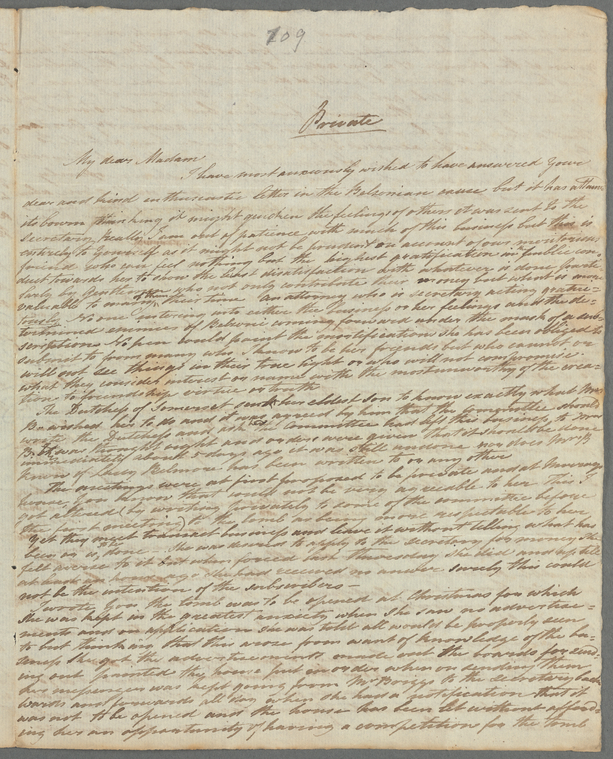 109
Private
My dear Madam
I have most anxiously wished to have answered your
dear and kind enthusiastic letter in the Belzonian cause but it has
its bourn thinking it might quicken the feelings of others it was sent to the
secretary. Really I am out of patience with much of this business but this is
entirely to yourself as it might not be prudent on account of our meritorious
friend who can feel nothing but the highest gratification in public con-
duct towards her to show the least disatisfaction with whatever is done
by those who not only contribute their money but what is more
valuable to many their time. An attorney who is secretary acting
No one entering into either the business or her feelings and the de-
enemies of Belzoni coming forward under the mask of a sub-
scription. No pen could paint the mortification she has been obliged to
submit to from many who I know to be her friends but who cannot or
will not see things in their true light or who will not compromise
what they consider interest or name with the most unworthy of the crea-
tion to friendship virtue or truth
The Dutchess of Somerset sent her eldest son to know exactly what Mrs
B. wished her to do and it was agreed by him that the committee should
wrote the Dutchess and the committee had left this business to Mr
B. It was thought right and orders were given that it should be done
immediately about 8 days ago it was still undone nor does Mrs B
know if Lady Belmore has been written to or any other
The meetings were at first proposed to be private and at
house you know that would not be very agreeable to her this I
got altered (by writing privately to some of the committee before
the first meeting) to the tomb as being more respectable to her
yet they meet transact business and leave it without telling what has
been or is done. She was desired to apply to the secretary for money she
felt averse to it but when forced last thursday she did and up till
at had received no answer surely this could
not be the intention of the subscribers—
I wrote you the tomb was to be opened at Christmas for which
she was kept in the greatest anxiety when she saw no advertise-
ments and on application she was told all would be properly seen
to but thinking that this arose from want of knowledge of the bu-
siness she got the advertisements made and the boards for send-
ing out painted the house put in order when on sending them
her messenger was kept going from Mr Briggs to the secretary back
wards and forwards all day when she had a notification that it
was not to be opened and the house has been let without afford-
ing her an opportunity of having a competition for the tomb